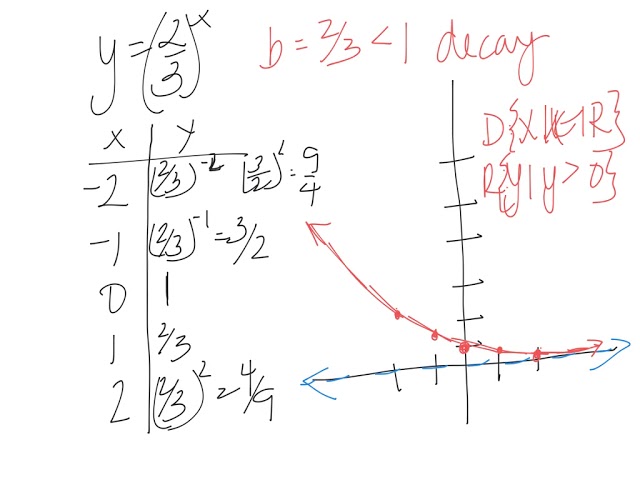 y = (2/3)^x
b = 2/3 < 1 decay
D{x|x∈R}
R{y|y>0}
x y
-2 (2/3)^-2 (3/2)^2 = 9/4
-1 (2/3)^-1 = 3/2
0 1
1 2/3
2 (2/3)^2 = 4/9